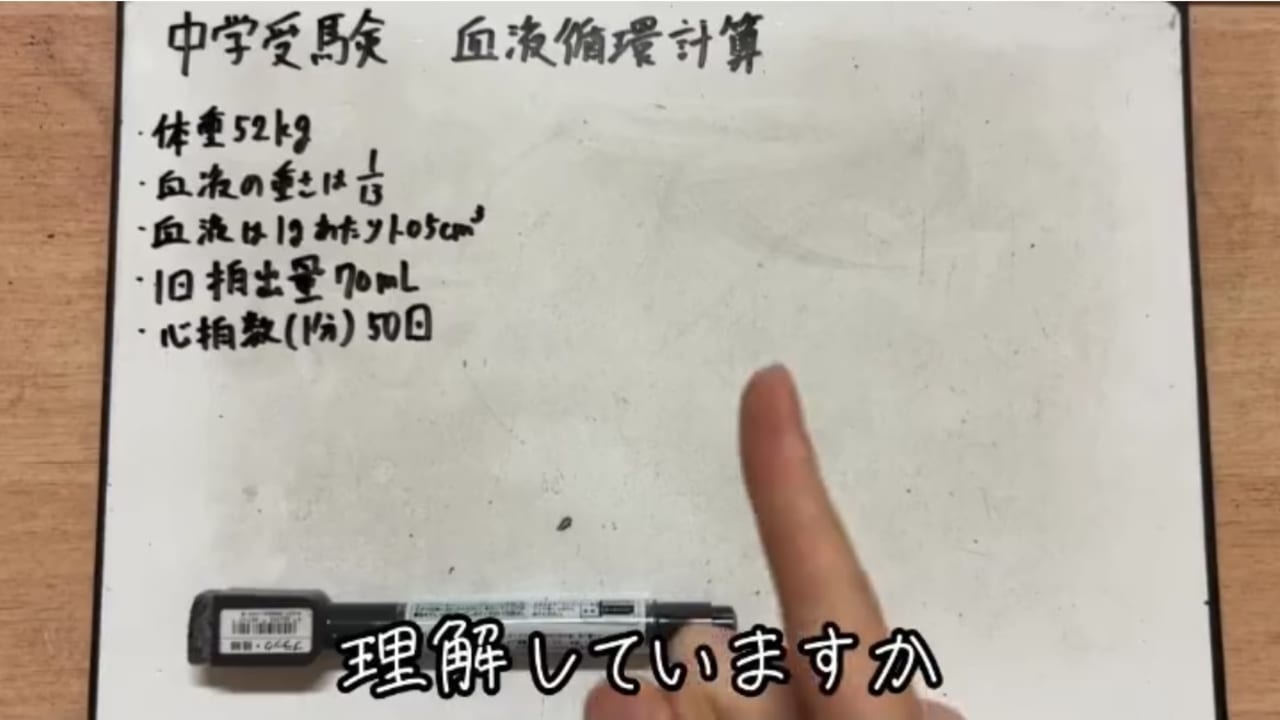 中学受験 血液循環計算
・体重52kg
・血液の重さは1/13
・血液は1gあたり1.05cm³
・1回拍出量70mL
・心拍数(1分)50回
ブラック・極細
理解していますか